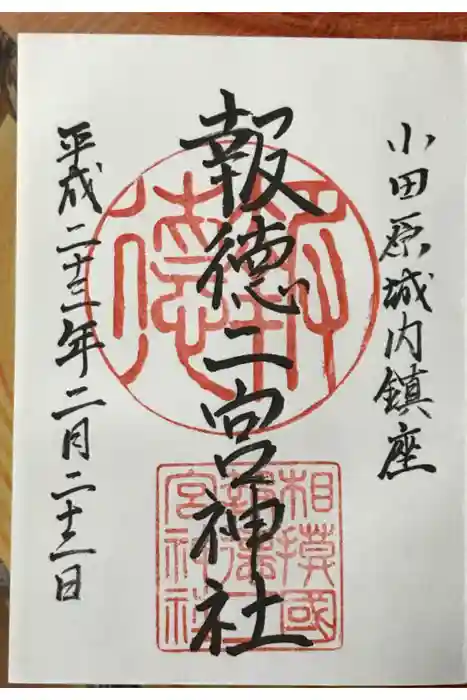 小田原城内鎮座
報徳二宮神社
平成二十三年二月二十三日
報徳
相模國
報徳二
宮神社